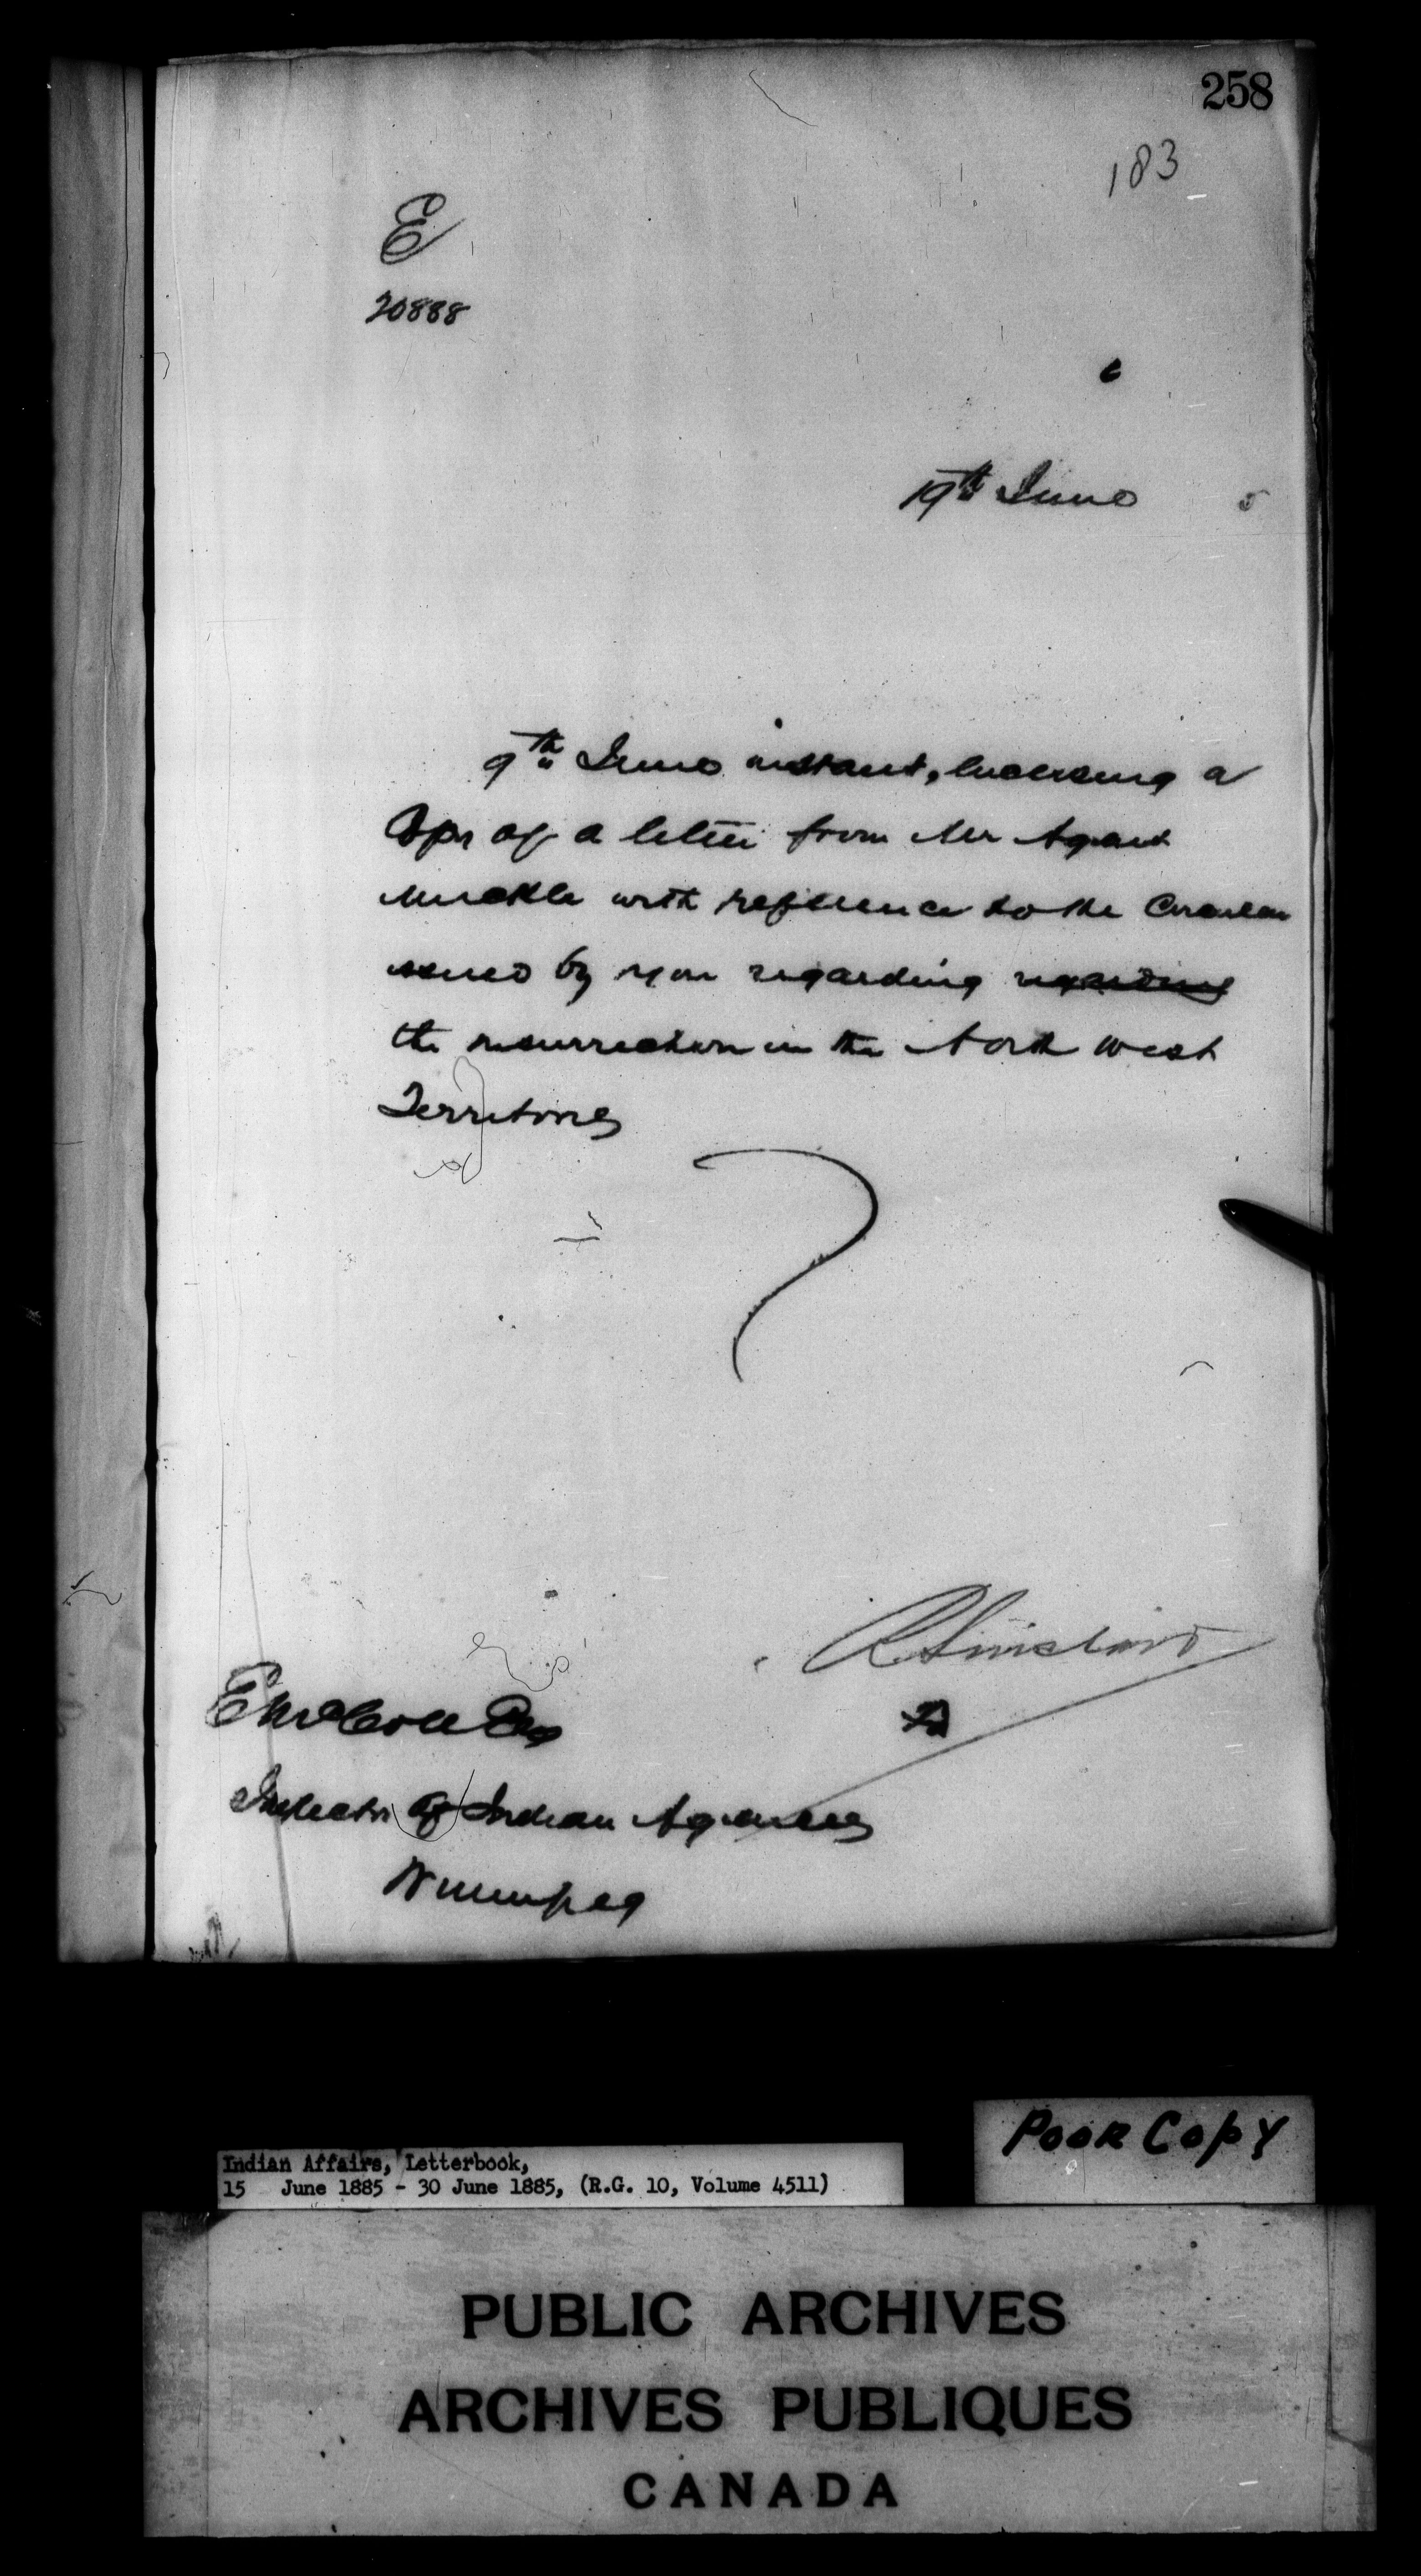 258
183
E
20888
19th June 5
9th June instant, Enclosing a
Copy of a letter from Mr Agent
Muckle with reference to the Circular
issued by you regarding regarding
the insurrection in the North West
Territories
R Sinclair
E McColl Esq
Inspector of Indian Agencies
Winnipeg
Poor Copy
Indian Affairs, Letterbook,
15 June 1885 - 30 June 1885, (R.G. 10, Volume 4511)
PUBLIC ARCHIVES
ARCHIVES PUBLIQUES
CANADA